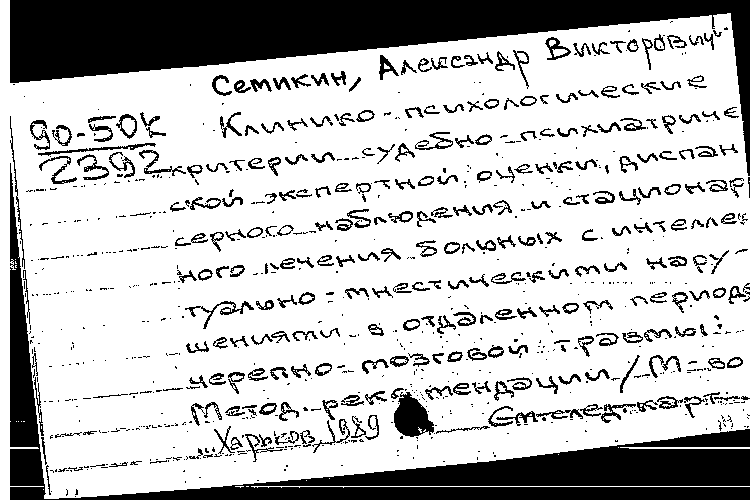 Семикин, Александр Викторович.
90-50К
2392
Клинико-психологические
критерии судебно-психиатриче
ской экспертной оценки, диспан
серного наблюдения и стационар
ного лечения больных с интеллек
туально-мнестическими нару-
шениями в отдаленном периоде
черепно-мозговой травмы:
Метод. реко мендации / М-во
...Харьков, 1989
См. след. карт.